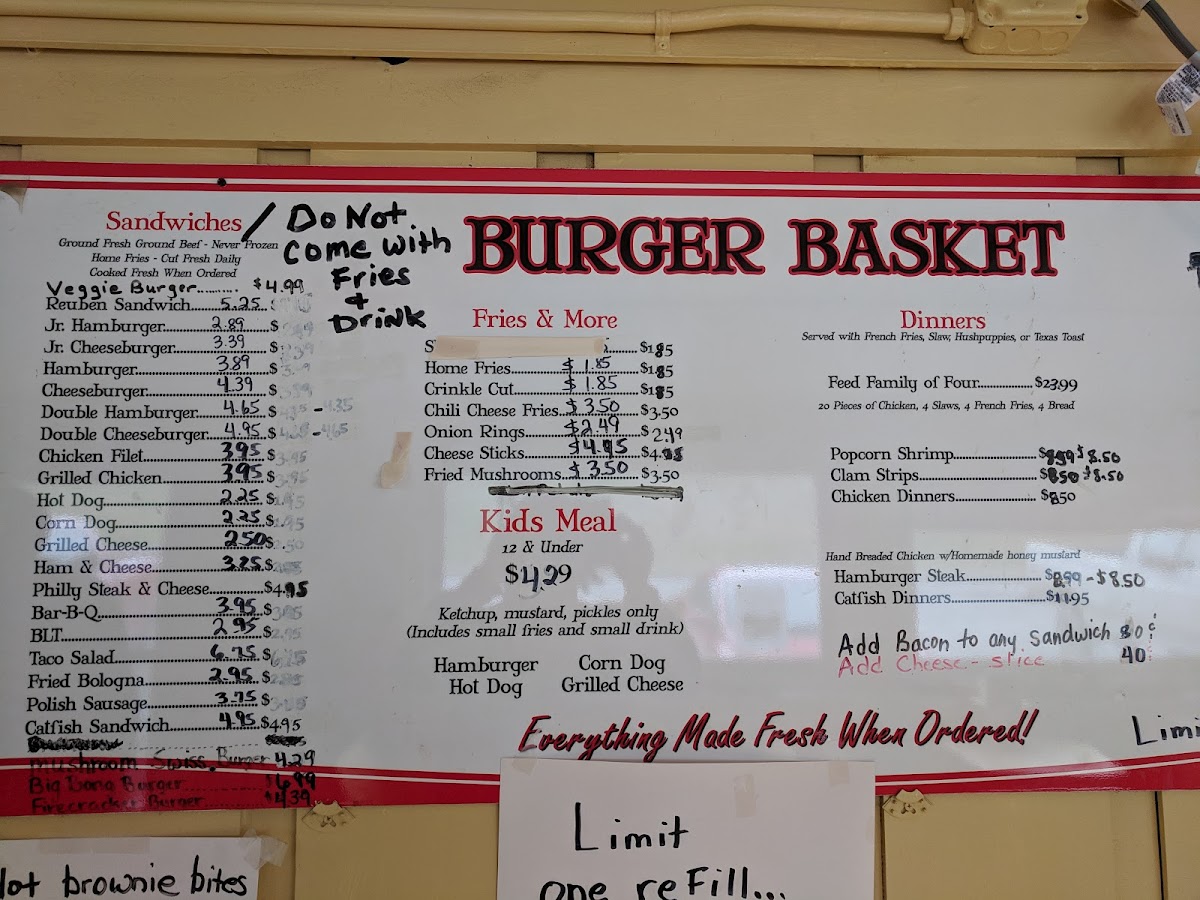 BURGER BASKET
Sandwiches / Do Not
come with
Fries
&
Drink
Ground Fresh Ground Beef - Never Frozen
Home Fries - Cut Fresh Daily
Cooked Fresh When Ordered
Veggie Burger.......... $4.99
Reuben Sandwich 5.25
Jr. Hamburger 2.89 $
Jr. Cheeseburger 3.39 $
Hamburger 3.89 $
Cheeseburger 4.39 $
Double Hamburger 4.65 $ - 4.35
Double Cheeseburger 4.95 $ - 4.65
Chicken Filet 3.95 $3.95
Grilled Chicken 3.95 $3.95
Hot Dog 2.25 $1.95
Corn Dog 2.25 $1.95
Grilled Cheese 2.50 $2.50
Ham & Cheese 3.25 $
Philly Steak & Cheese $4.95
Bar-B-Q 3.95 $
BLT 2.95 $2.95
Taco Salad 6.75 $
Fried Bologna 2.95 $
Polish Sausage 3.75 $
Catfish Sandwich 4.95 $4.95
Mushroom Swiss Burger 4.29
Big Bang Burger $6.99
Firecracker Burger $4.39
Fries & More
S $1.85
Home Fries $1.85 $1.85
Crinkle Cut $1.85 $1.85
Chili Cheese Fries $3.50 $3.50
Onion Rings $2.49 $2.49
Cheese Sticks $4.95 $4.95
Fried Mushrooms $3.50 $3.50
Kids Meal
12 & Under
$4.29
Ketchup, mustard, pickles only
(Includes small fries and small drink)
Hamburger Corn Dog
Hot Dog Grilled Cheese
Dinners
Served with French Fries, Slaw, Hushpuppies, or Texas Toast
Feed Family of Four $23.99
20 Pieces of Chicken, 4 Slaws, 4 French Fries, 4 Bread
Popcorn Shrimp $8.50
Clam Strips $8.50 $8.50
Chicken Dinners $8.50
Hand Breaded Chicken w/Homemade honey mustard
Hamburger Steak $8.99 - $8.50
Catfish Dinners $11.95
Add Bacon to any Sandwich 80¢
Add Cheese - slice 40
Everything Made Fresh When Ordered!
Limi
Limit
one refill...
Hot brownie bites